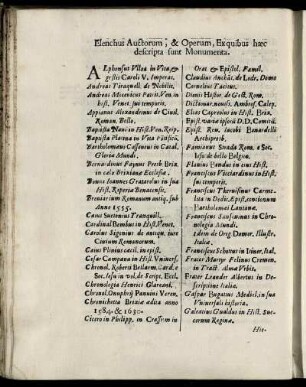 Elenchus Auctorum, & Operum, Ex quibus hæc
descripta sunt Monumenta.
ALphonsus Vlloa in Vita &
gestis Caroli V. Imperat.
Andreas Tiraquell. de Nobilit.
Andreas Mauroceni Patri. Ven. in
hist. Venet. sui temporis.
Appianus Alexandrinus de Civil.
Roman. Bello.
Baptista in Hist. Ven. Reip.
Baptista Platina in Vita Pontific.
Bartholomæus Cassaneus in Catal.
Gloriæ Mundi.
Bernardinus Faynus Presb. Brix.
in cælo Brixianæ Ecclesiæ.
Bonus Ioannes Gratarol in sua
Hist. Reperia Benacensis.
Breviarium Romanum antiq. sub
Anno 1555.
Caius Suetonius Tranquill.
Cardinal Bembus in Hist. Venet.
Carolus Sigonius de antiquo iure
Civium Romanorum.
Caius Plinius cæcil. in epist.
Cæsar Campana in Hist. Univers.
Chronol. Roberti Bellarm. Card. e
Soc. Iesu in vol. de Script. Eccl.
Chronologia Henrici Glareani.
Chronol. Onuphrij Panvini Veron.
Chronichetta Brixiæ edita anno
1584. & 1630.
Cicero in Philipp. in Crassum in
Orat. & Epistol. Famil.
Claudius de Lode.
Cornelius Tacitus.
Dionis Histor. de Gest. Rom.
Dictionar. novis. Ambros. Calep.
Elias Capreolus in Hist. Brix.
Epist. variæ
Epist. Rev. Iacobi Bonardelli
Archipresb.
Famianus Strada Rom. e Soc.
Iesu de bello Belgico.
Flavius Blondus in sua Hist.
Franciscus Vicciardinus in Hist.
temporis.
Franciscus Carmelita
in Dedic. & pist. concionum
Bartholomei Lantana.
Franciscus Sansovinus in Chronologia
Mundi.
Idem de Orig. Domor. Illustr.
Italiæ.
Franciscus Schotus in Itiner. Ital.
Frater Maurus Felinus Cremon.
in Tract. Alma Orbis.
Frater Leander Albertus in Descriptione
Italiæ.
Gaspar Bugatus Mediol. in sua
Universali historia.
Galeatius Gualdus in Hist. Successorum
Regina.
Hie-